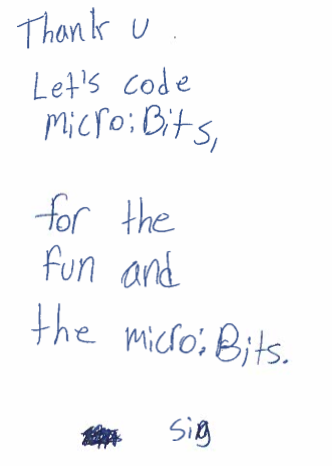 Thank u.
Let's code
micro:Bits,
for the
fun and
the micro:Bits.
sig